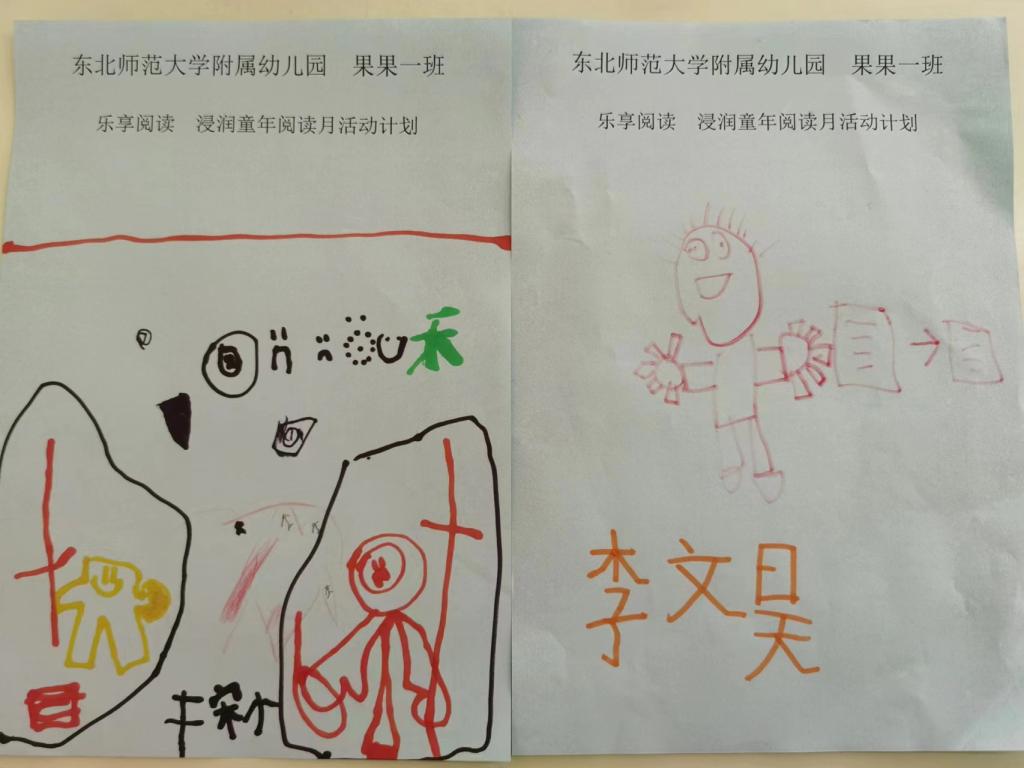 东北师范大学附属幼儿园 果果一班
乐享阅读 浸润童年阅读月活动计划
禾
东北师范大学附属幼儿园 果果一班
乐享阅读 浸润童年阅读月活动计划
李文昊